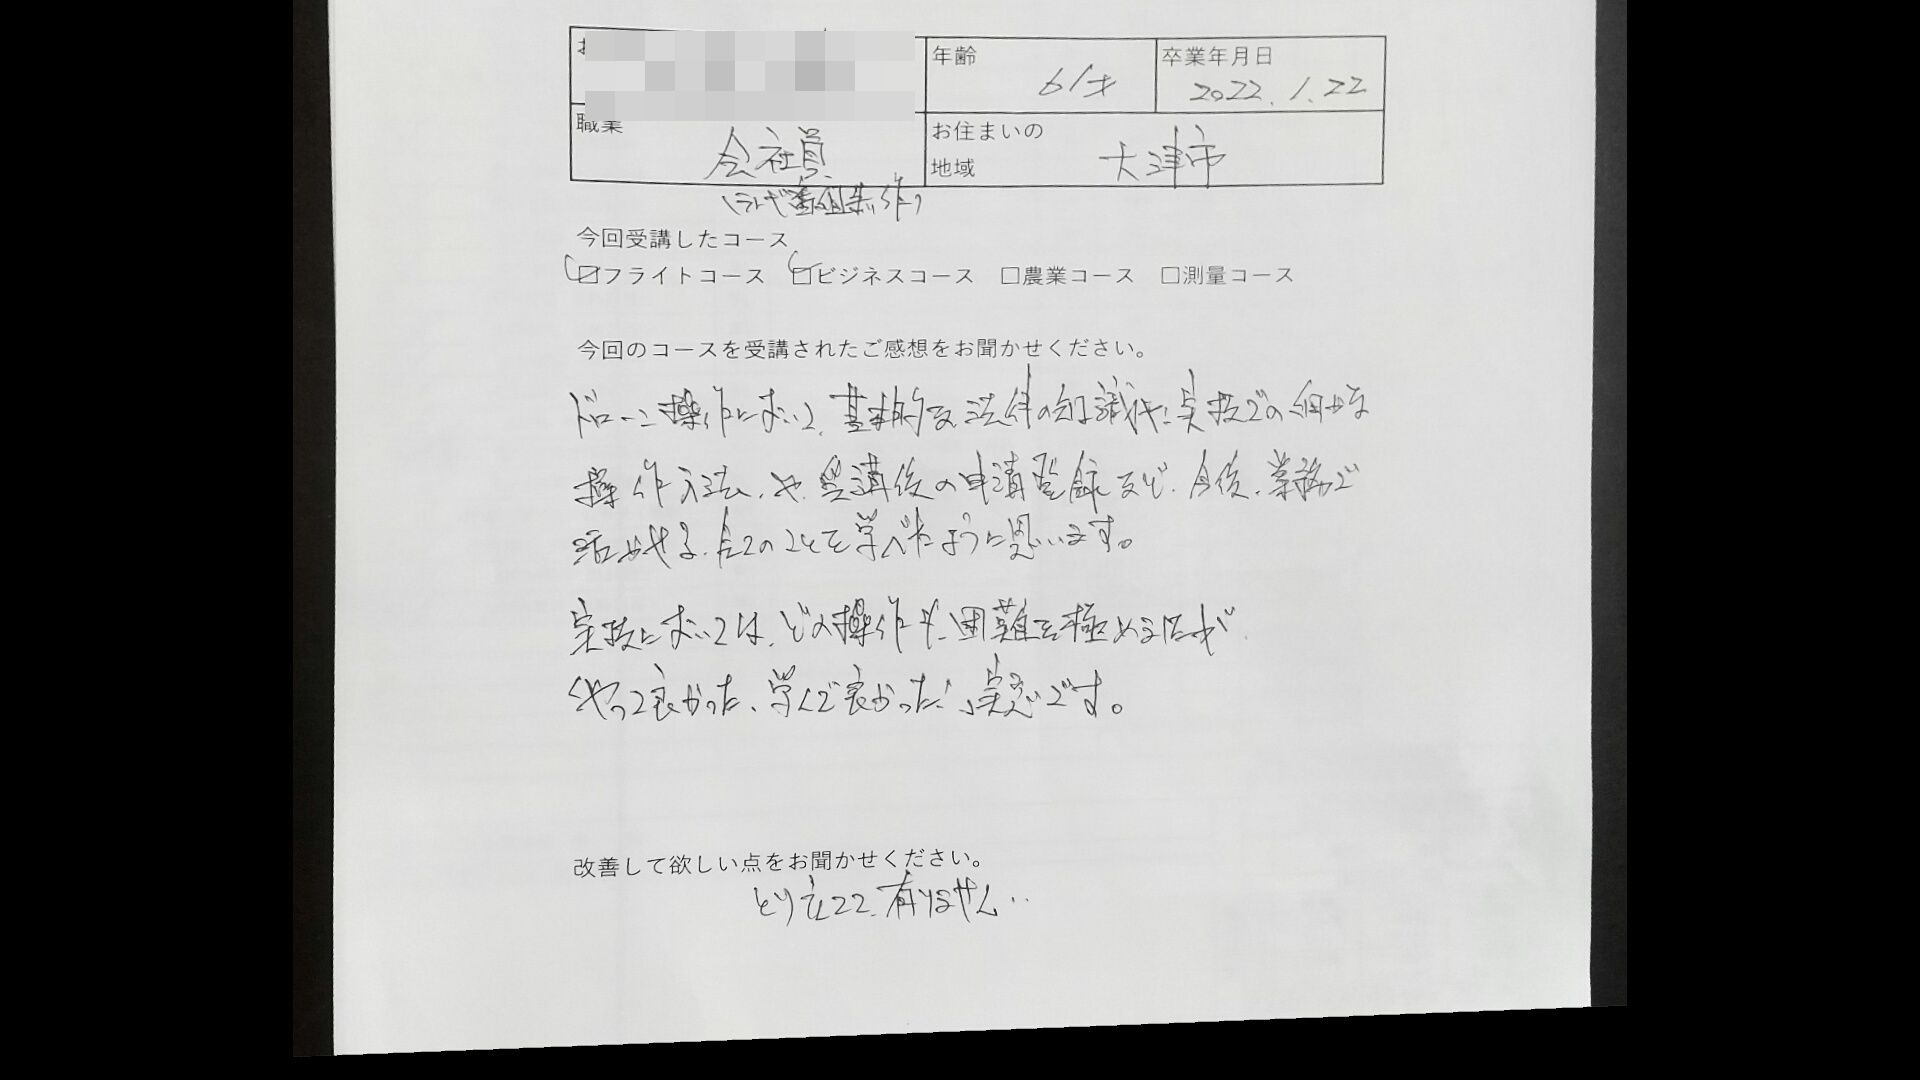 年齢 61才
卒業年月日 2022.1.22
職業 会社員
(テレビ番組制作)
お住まいの地域 大津市
今回受講したコース
☑フライトコース ☑ビジネスコース □農業コース □測量コース
今回のコースを受講されたご感想をお聞かせください。
ドローン操作において、基本的な法律の知識や、実技での細かな
操作方法、や、受講後の申請登録など、今後、業務で
活かせる、全てのことを学べたように思います。
実技においては、どの操作も、困難を極めましたが
「やって良かった、学んで良かった!」実感です。
改善して欲しい点をお聞かせください。
とり立てて、有りません‥